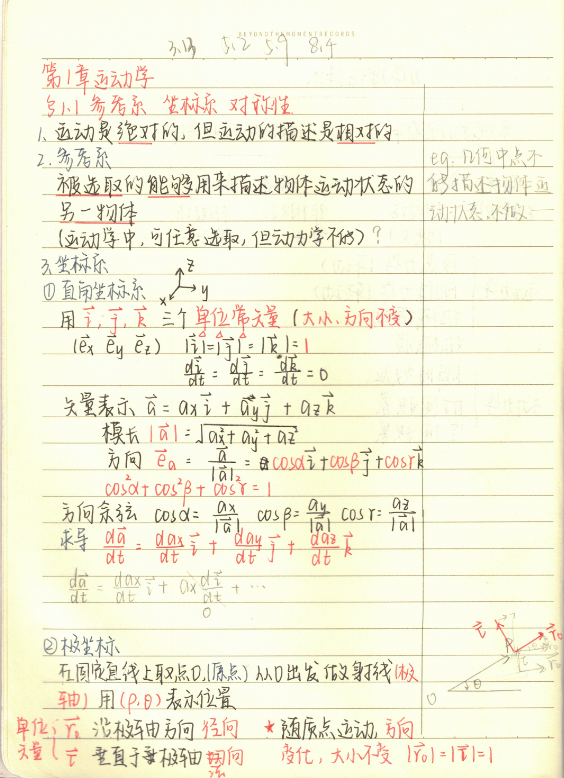 BEYONDTHEMOMENTRECORDS
3.13 5.2 5.9 8.4
第1章运动学
§1.1 参考系 坐标系 对称性
1. 运动是绝对的，但运动的描述是相对的
2. 参考系
被选取的能够用来描述物体运动状态的
另一物体
(运动学中，可任意选取，但动力学不能)?
eg. 几何中点不
能描述物体运
动状态，不做一
3. 坐标系
① 直角坐标系
z
x y
用 i⃗, j⃗, k⃗ 三个单位常矢量 (大小、方向不变)
(e⃗x e⃗y e⃗z) |i⃗|=|j⃗|=|k⃗|=1
di⃗/dt = dj⃗/dt = dk⃗/dt = 0
矢量表示 a⃗ = ax i⃗ + ay j⃗ + az k⃗
模长 |a⃗| = √(ax²+ay²+az²)
方向 e⃗a = a⃗/|a⃗| = cosα i⃗ + cosβ j⃗ + cosγ k⃗
cos²α + cos²β + cos²γ = 1
方向余弦 cosα = ax/|a⃗| cosβ = ay/|a⃗| cosγ = az/|a⃗|
求导 da⃗/dt = dax/dt i⃗ + day/dt j⃗ + daz/dt k⃗
da⃗/dt = dax/dt i⃗ + ax di⃗/dt + ⋯
0
② 极坐标
在固定直线上取点O,(原点) 从O出发做射线(极
轴) 用 (ρ,θ) 表示位置
τ⃗ P r⃗₀
O θ
单位矢量 { r⃗₀ 沿极轴方向 径向 ★随质点运动,方向
τ⃗ 垂直于极轴 变化，大小不变 |r⃗₀|=|τ⃗|=1